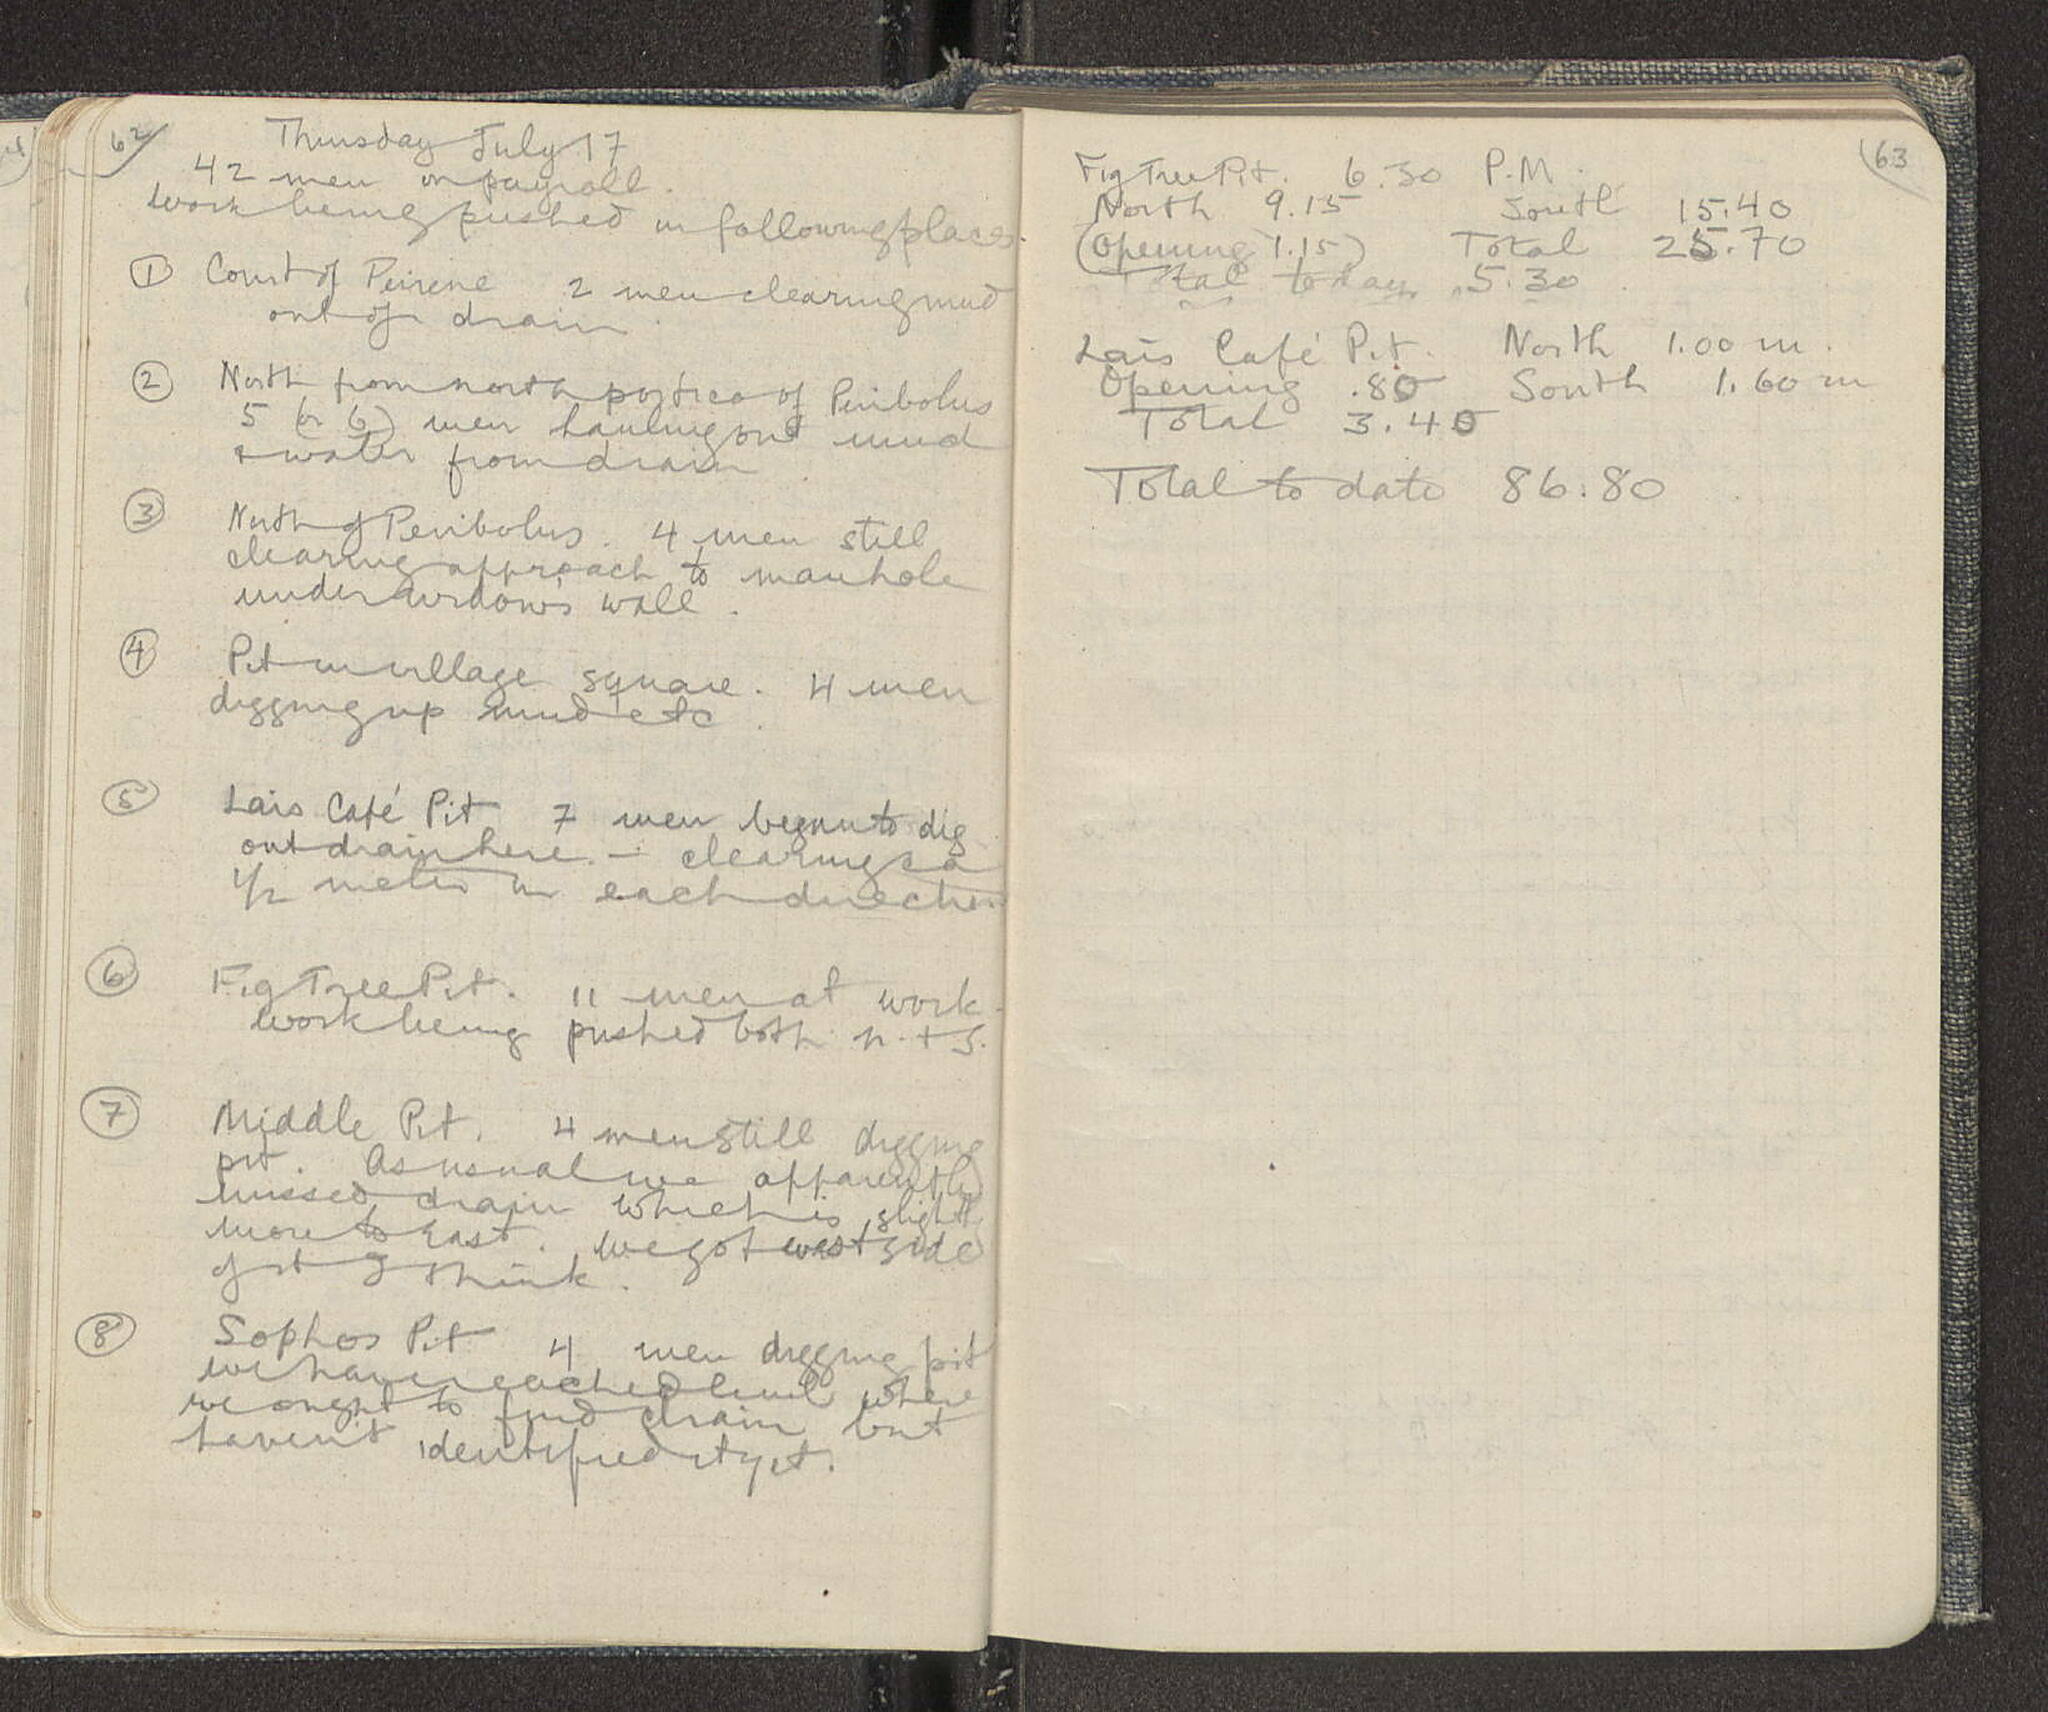 62
Thursday July 17
42 men on payroll.
Work being pushed in following places.
① Court of Peirene 2 men clearing mud
out of drain.
② North from north portico of Peribolus
5 (or 6) men hauling out mud
& water from drain
③ North of Peribolus. 4 men still
clearing approach to manhole
under widow's wall.
④ Pit in village square. 4 men
digging up mud etc.
⑤ Lais Café Pit 7 men begun to dig
out drain here. – clearing ca
1/2 meter in each direction
⑥ Fig Tree Pit. 11 men at work.
Work being pushed both n. + S.
⑦ Middle Pit. 4 men still digging
pit. As usual we apparently
missed drain which is slightly
more to East. We got west side
of it I think.
⑧ Sophos Pit 4 men digging pit
we have reached level where
we ought to find drain but
haven't identified it yet.
63
Fig Tree Pit. 6.30 P.M.
North 9.15 South 15.40
(Opening 1.15) Total 25.70
Total today 5.30
Lais Café Pit. North 1.00 m.
Opening .80 South 1.60 m
Total 3.40
Total to date 86.80